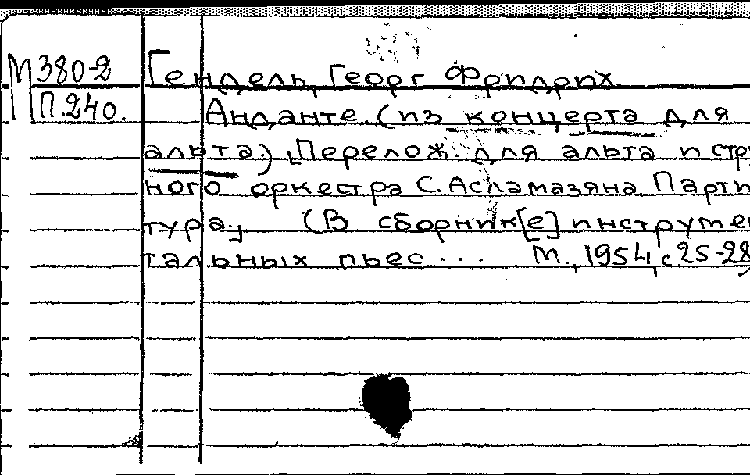 М380-2 Гендель, Георг Фридрих.
П.240. Анданте. (из концерта для
альта) [Перелож. для альта и стру
ного оркестра С. Асламазяна. Парти
тура] (В сборник[е] инструмен
тальных пьес... М., 1954, с. 25-28